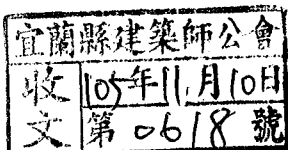 宜蘭縣建築師公會
收文
105年11月10日
第0618號